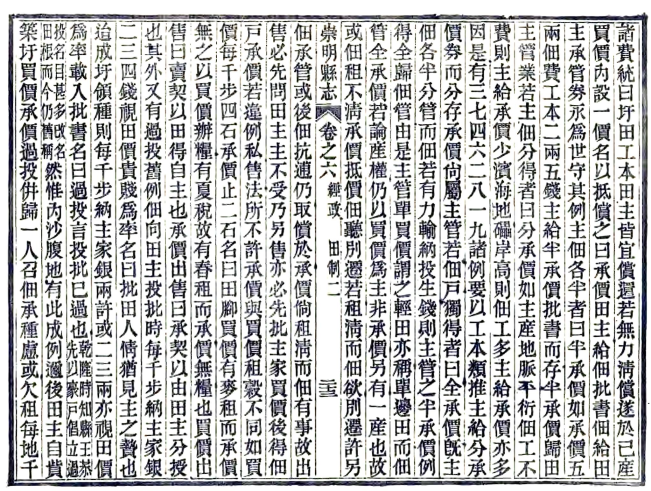 諸費統曰圩田工本田主皆宜償還若無力淸償遂於己產
買價內設一價名以抵償之曰承價田主給佃批書佃給田
主承管券永爲世守其例主佃各半者曰半承價如承價五
兩佃費工本二兩五錢主給半承價批書而存半承價歸田
主管業若主佃分得者曰分承價如主產地脈平衍佃工不
費則主給承價少濱海地礓岸高則佃工多主給承價亦多
因是有三七四六二八一九諸例要以工本類推主給分承
價券而分存承價向屬主管若佃戸獨得者曰全承價旣主
佃各半分管而佃若有力輸納投生錢則主管之半承價例
得全歸佃管由是主管單買價謂之輕田亦稱單邊田而佃
管全承價若論產權仍以買價爲主非承價另有一產也故
或佃租不淸承價抵價佃聽別遷若租淸而佃欲別遷許另
崇明縣志 卷之六 經政 田制二 二三
佃承管或後佃抗逋仍取償於承價倘租淸而佃有事故出
售必先問田主主不受乃另售亦必先批主家買價後得佃
戸承價若違例私售法所不許承價與買價租穀不同如買
價每千步四石承價止二石名曰田腳買價有麥租而承價
無之以買價辦糧有夏稅故有春租而承價無糧也買價出
售曰賣契以田得自主也承價出售曰承契以由田主分授
也其外又有過投舊例佃向田主投批時每千步納主家銀
二三四錢視田價貴賤爲率名曰批田人情猶見主之贄也
迨成圩領種則每千步納主家銀兩許或二三兩亦視田價
爲率載入批書名曰過投言投批已過也乾隆時知縣王恭先以豪戸倡立過
投名目甚多改名田根而今仍舊稱然惟內沙腹地有此成例邇後田主自貲
築圩買價承價過投併歸一人召佃承種慮或欠租每地千